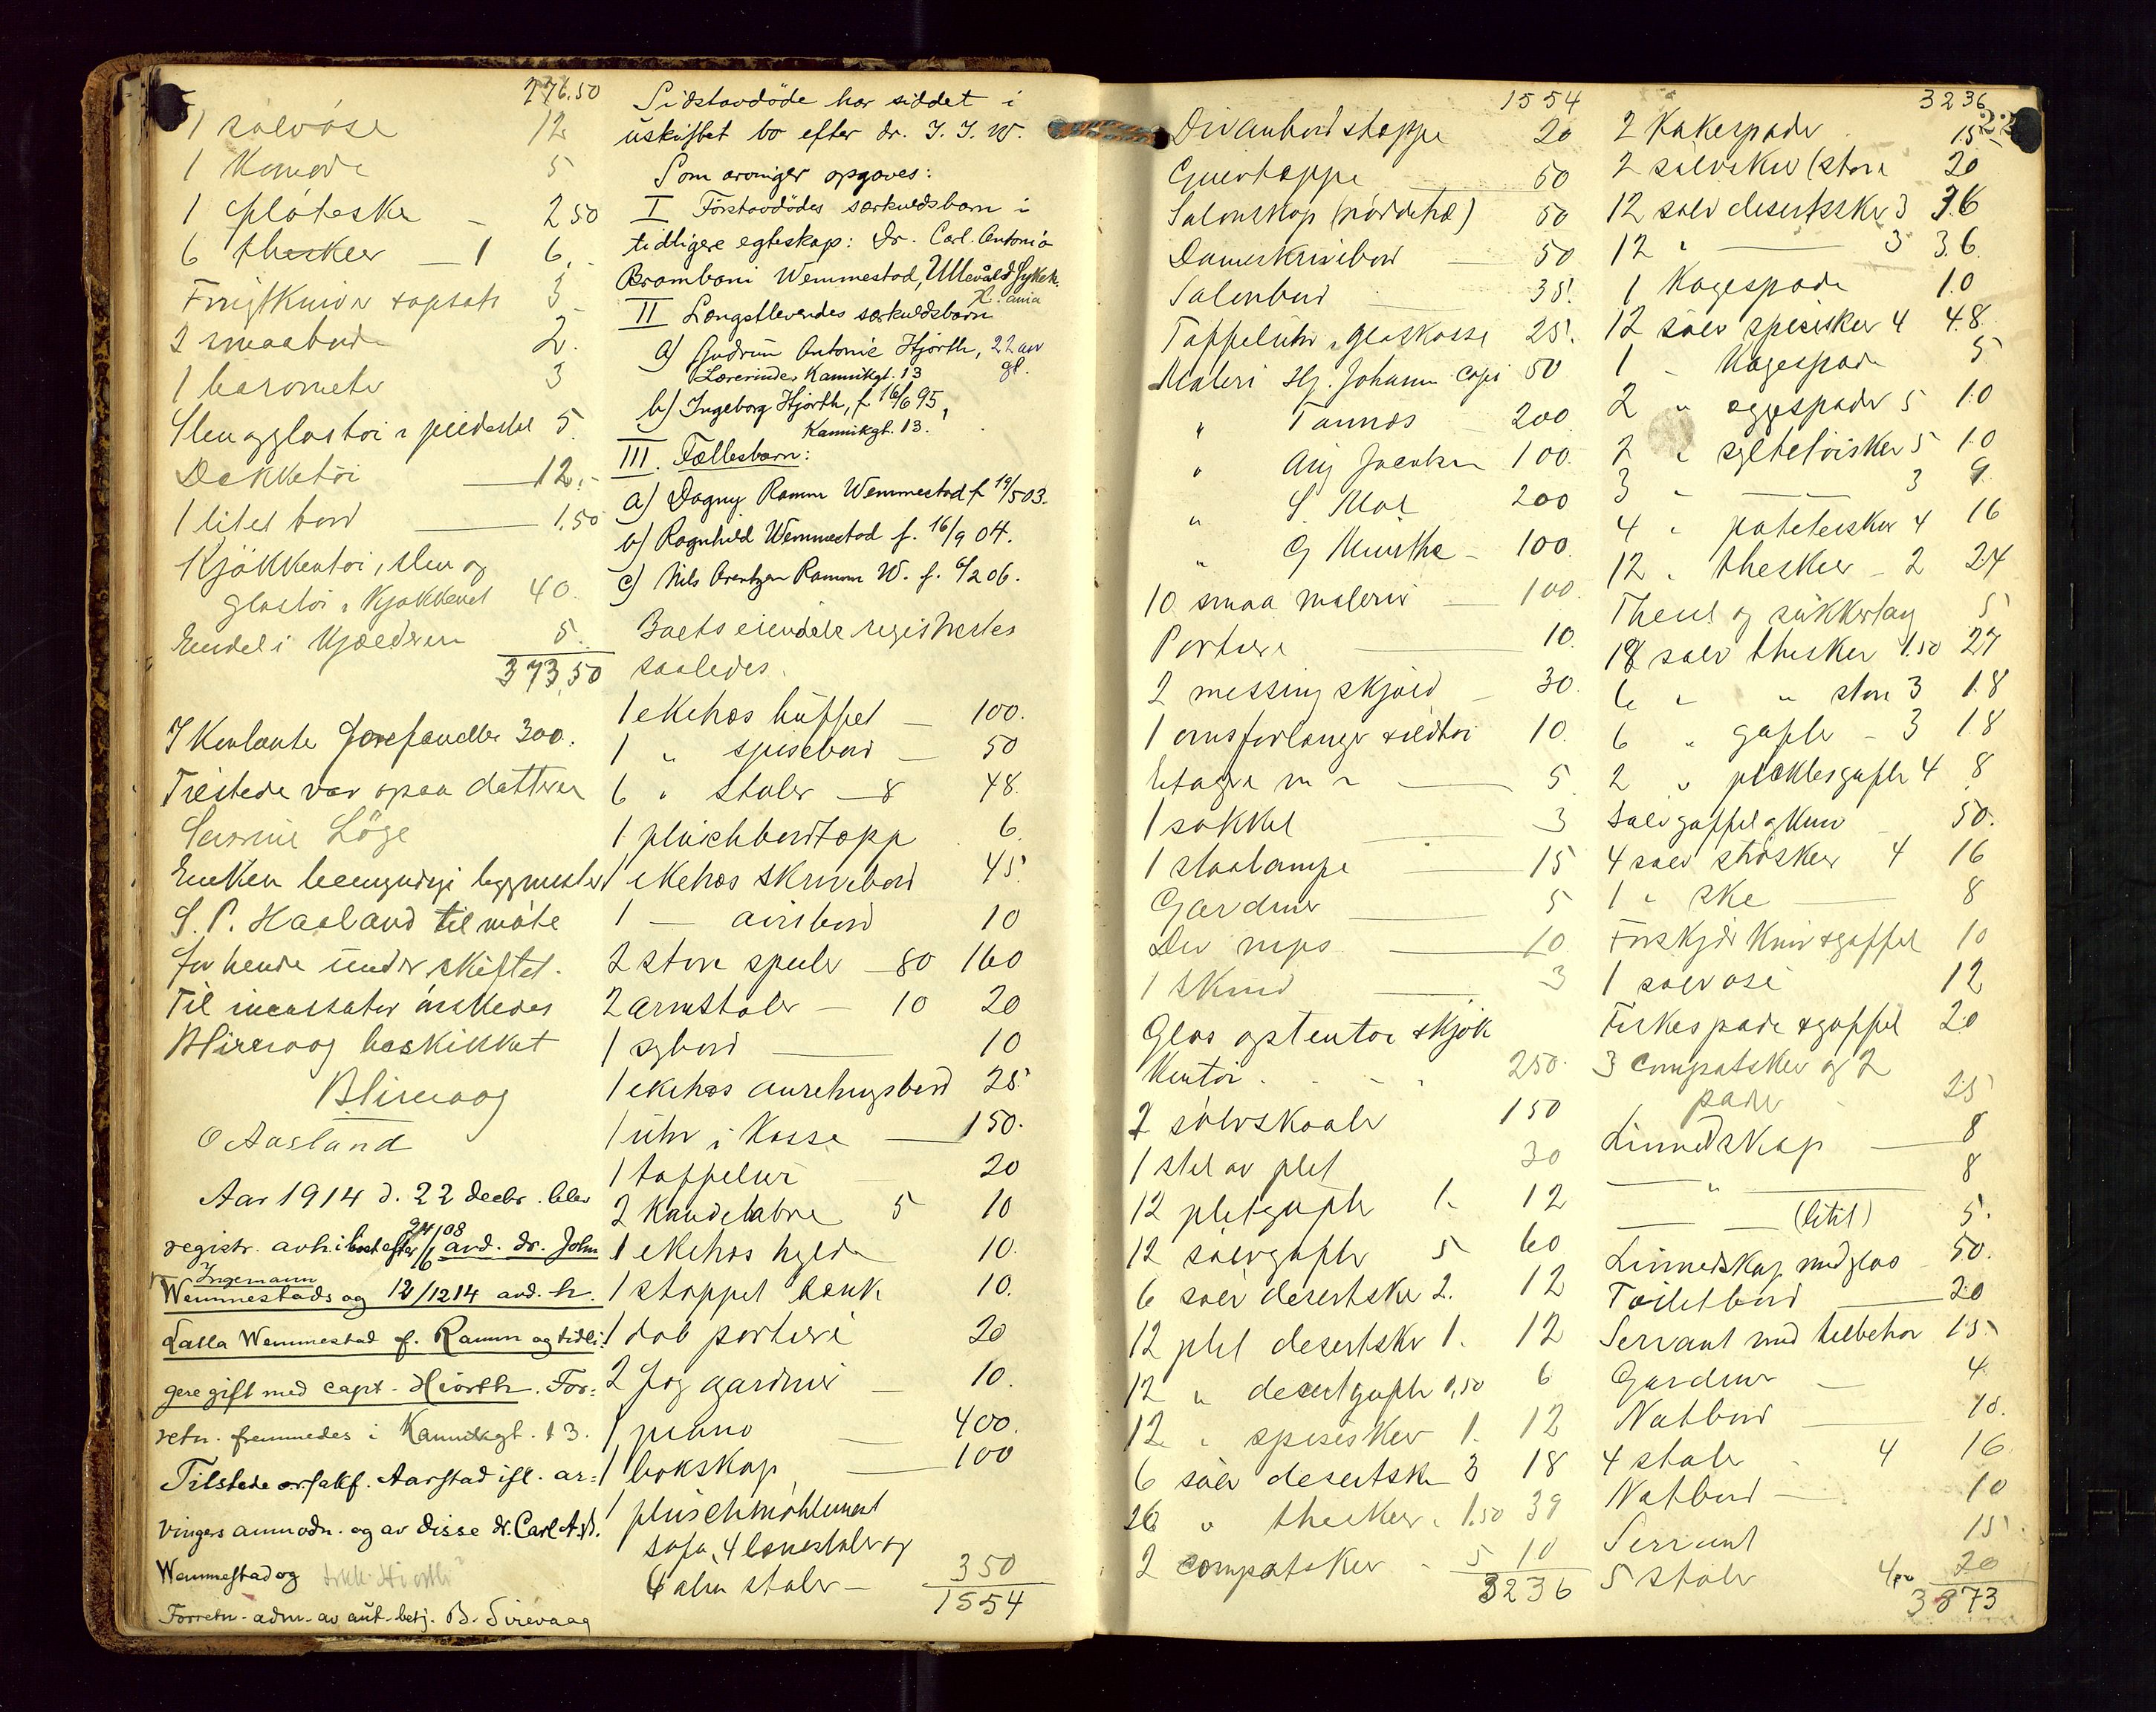 276.50
1 sølvøse 12
1 Komode 5
1 fløteske - 2 50
6 theskeer - 1 6.-
Frugtkniver & opsats 3
2 smaaborde 2.
1 barometer 3
Sten og glastøi & piedestal 5.
Dekketøi 12.-
1 litet bord 1.50
Kjøkkentøi, sten og
glastøi i kjøkkenet 40.
Endel i Kjælderen 5.
373,50
I Kontante forefandtes 300.
Tilstede var ogsaa datteren
Serine Löge
Enken bemyndige byggmester
S. P. Haaland til møte
for hende under skiftet.
Til incassator ønskedes
B Sirevaag beskikket
B Sirevaag
O Aasland
Aar 1914 d. 22 decbr. blev
registr. avh. i boet efter 24/6 08 avd. dr. John
Ingemann
Wemmestads og 12/12 14 avd. h.
Lalla Wemmestad f. Ramm og tidli-
gere gift med capt. Hiorth. For=
retn. fremmedes i Kannikgt. 13.
Tilstede o.r.sakf. Aarstad ifl. ar=
vingers anmodn. og av disse dr. Carl A. B.
Wemmestad og frkk. Hiorth
Forretn. adm. av aut. betj. B. Sirevaag
Sidstavdöde har siddet i
uskiftet bo efter dr. J. I. W.
Som arvinger opgaves:
I Förstavdödes særkuldsbarn i
tidligere egteskap: Dr. Carl. Antonio
Bramboni Wemmestad, Ullevåld Sykeh.
Kr.ania
II Længstlevendes særkuldsbarn
a) Gudrun Antonie Hjorth, 22 aar
gl.
Lærerinde, Kannikgt. 13
b) Ingeborg Hjorth, f. 16/6 95,
Kannikgt. 13.
III. Fællesbarn:
a) Dagny Ramm Wemmestad f. 19/5 03.
b) Ragnhild Wemmestad f. 16/9 04.
c) Nils Arentzen Ramm W. f. 6/2 06.
Boets eiendele registrertes
saaledes.
1 ekehos buffet - 100.
1 " spisebord - 50
6 " stoler - 8 48.
1 pluschbordtæpp 6.
1 ekehos skrivebord 45
1 - avisbord 10
2 store speiler - 80 160
2 armstoler - 10 20
1 sybord 10
1 ekehos anretningsbord 25
1 uhr i Kasse 150.
1 taffelur 20
2 kandelabre 5 10
1 ekehos hylde 10.
1 stoppet bænk 10.
1 dob portiere 20
2 fag gardiner - 10.
1 piano - 400.
1 bokskap 100
1 pluschmøblement
sofa, 4 lænestoler og
6 alm stoler - 350
1554
1554
Divanbord stæppe 20
Gulvtæppe 50
Salonskap (nøddetræ) 50
Dameskrivebord 50
Salonbord 35.
Taffeluhr i glaskasse 25.
Maleri Hj. Johann. Copi 50
" Tannæs 200
" Aug Jacobsen 100.
" S. Moe 200
" G Munthe - 100.
10 smaa malerier 100.
Portiere 10.
2 messing skjold - 30.
1 ovnsforlanger & ildtøi 10.
Etagere m n 5
1 sokkel 3
1 staalampe 15
Gardiner 5
Div nips 10
1 skind 3
Glas og stentøi & kjøk
kentøi 250.
2 sølvskaaler 150
1 stel av plet 30
12 pletgafler 1. 12
12 sølvgafler 5 60
6 sølv desertske 2. 12
12 plet desertsker 1. 12
12 " desertgafler 0,50 6
12 " spiseskeer 1. 12
6 sølv desertsk 3 18
26 " theskeer 1.50 39
2 compotskeer - 5 10
3236
3236
22
2 Kakespader 15
2 sølvskeer (store 20
12 sølv desertsker 3 36
12 " 3 36.
1 Kagespade 10
12 sølv spiseskeer 4 48
1 - Kagespade 5
2 " eggespader 5 10
2 " syltetøisker 5 10
3 - 3 9
4 " potetskeer 4 16
12 " theskeer - 2 24
Thesil og sukkertang 5
18 sølv theskeer 1.50 27
6 " " store 3 18
6 " gafler - 3 18
2 " picklesgafler 4 8
Sølvgaffel og Kniv 50.
4 sølv strøskeer 4 16
1 " ske 8
Forskjær Kniv & gaffel 10
1 sølvøse 12
Fiskespade & gaffel 20
3 compotskeer og 2
pader 25
Linnedskap 8
" 8
(litet) 5.
Linnedskap med glas 50.
Toiletbord 20
Servant med tilbehør 15.
Gardiner 4
Natbord 10.
4 stoler 4 16
Natbord 10
Servant 15
5 stoler 4,- 20
3873